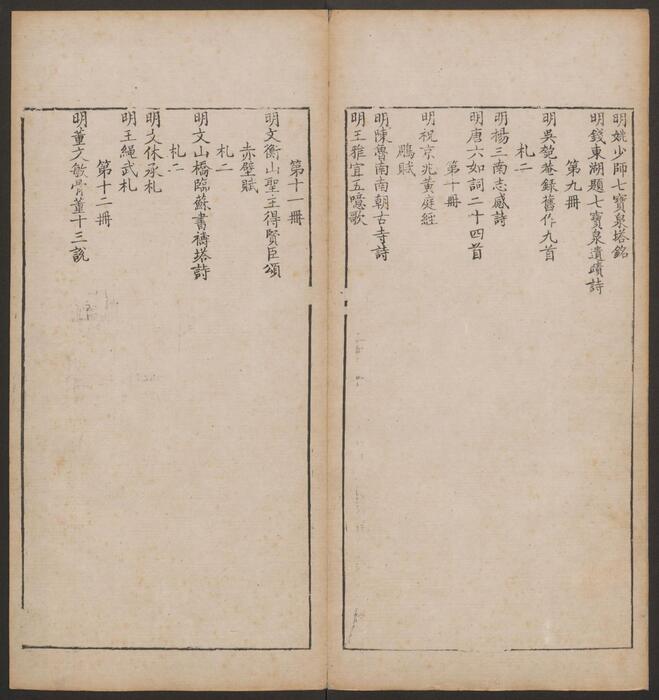 明姚少師七寶泉塔銘
明錢東湖題七寶泉遺蹟詩
第九冊
明吳匏菴録舊作九首
札二
明楊三南志感詩
明唐六如詞二十四首
第十冊
明祝京兆黄庭經
鵩賦
明陳魯南南朝古寺詩
明王雅宜五噫歌
第十一冊
明文衡山聖主得賢臣頌
赤壁賦
札二
明文山橋臨蘇書禱塔詩
札二
明文休承札
明王繩武札
第十二冊
明董文敏骨董十三說